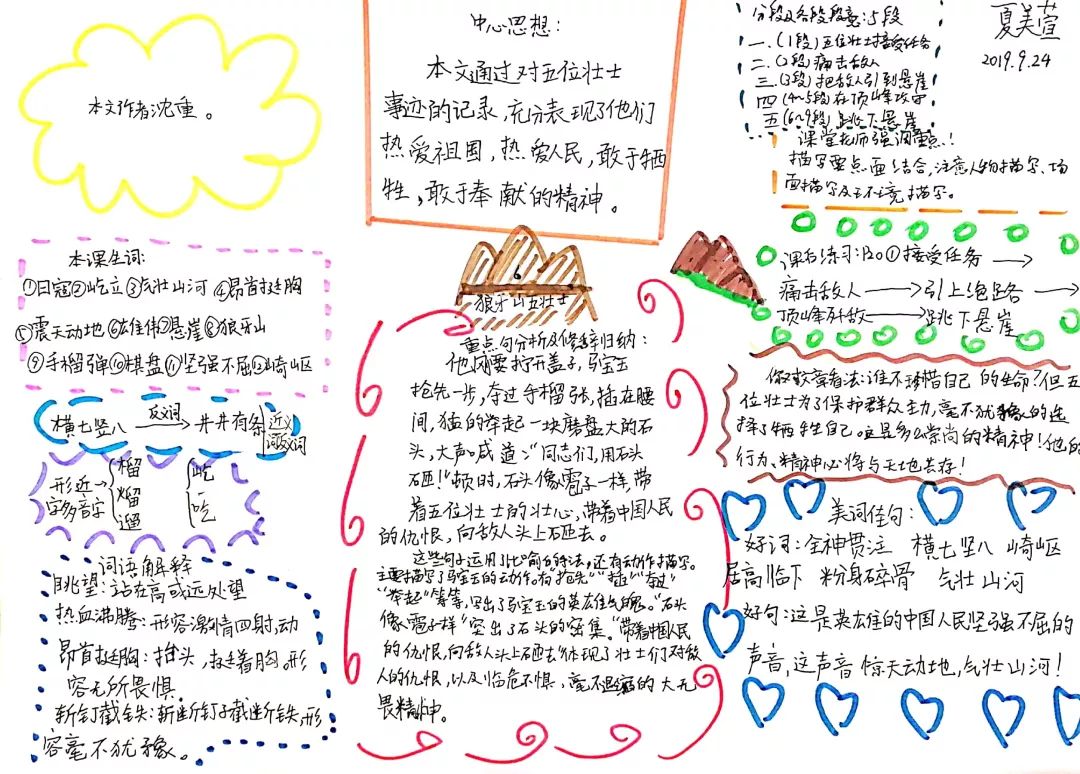 本文作者沈重。
中心思想：
本文通过对五位壮士
事迹的记录，充分表现了他们
热爱祖国，热爱人民，敢于牺
牲，敢于奉献的精神。
分段及各段段意：5段
一．（1段）五位壮士接受任务
二．（2段）痛击敌人
三．（3段）把敌人引到悬崖
四（4~5段）在顶峰攻击
五（6~9段）跳下悬崖
夏美萱
2019.9.24
课堂老师强调重点！！
描写要点面结合，注意人物描写、场
面描写及环境描写。
本课生词：
①日寇②屹立③气壮山河④昂首挺胸
⑤震天动地⑥雄伟⑦悬崖⑧狼牙山
⑨手榴弹⑩棋盘⑪坚强不屈⑫崎岖
横七竖八 反义词→ 井井有条 近义词反义词
形近字多音字
榴
熘
遛
屹
吃
词语解释
眺望：站在高或远处望
热血沸腾：形容激情四射，动
昂首挺胸：抬头，挺着胸，形
容无所畏惧
斩钉截铁：斩断钉子截断铁，形
容毫不犹豫。
狼牙山五壮士
重点句分析及修辞归纳：
他刚要拧开盖子，马宝玉
抢先一步，夺过手榴弹，插在腰
间，猛的举起一块磨盘大的石
头，大声喊道：“同志们，用石头
砸！”顿时，石头像雹子一样，带
着五位壮士的壮心，带着中国人民
的仇恨，向敌人头上砸去。
这些句子运用了比喻的修辞手法，还有动作描写。
主要描写了马宝玉的动作。有“抢先”“插”“夺过”
“举起”等等，写出了马宝玉的英雄气魄。“石头
像雹子一样”突出了石头的密集。“带着中国人民
的仇恨，向敌人头上砸去”体现了壮士们对敌
人的仇恨，以及临危不惧，毫不退缩的大无
畏精神。
课后练习：P20①接受任务→
痛击敌人→引上绝路→
顶峰歼敌→跳下悬崖
你对文章看法：谁不珍惜自己的生命？但五
位壮士为了保护群众主力，毫不犹豫的选
择了牺牲自己。这是多么崇尚的精神！他的
行为、精神必将与天地共存！
美词佳句：
好词：全神贯注 横七竖八 崎岖
居高临下 粉身碎骨 气壮山河
好句：这是英雄的中国人民坚强不屈的
声音，这声音惊天动地，气壮山河！